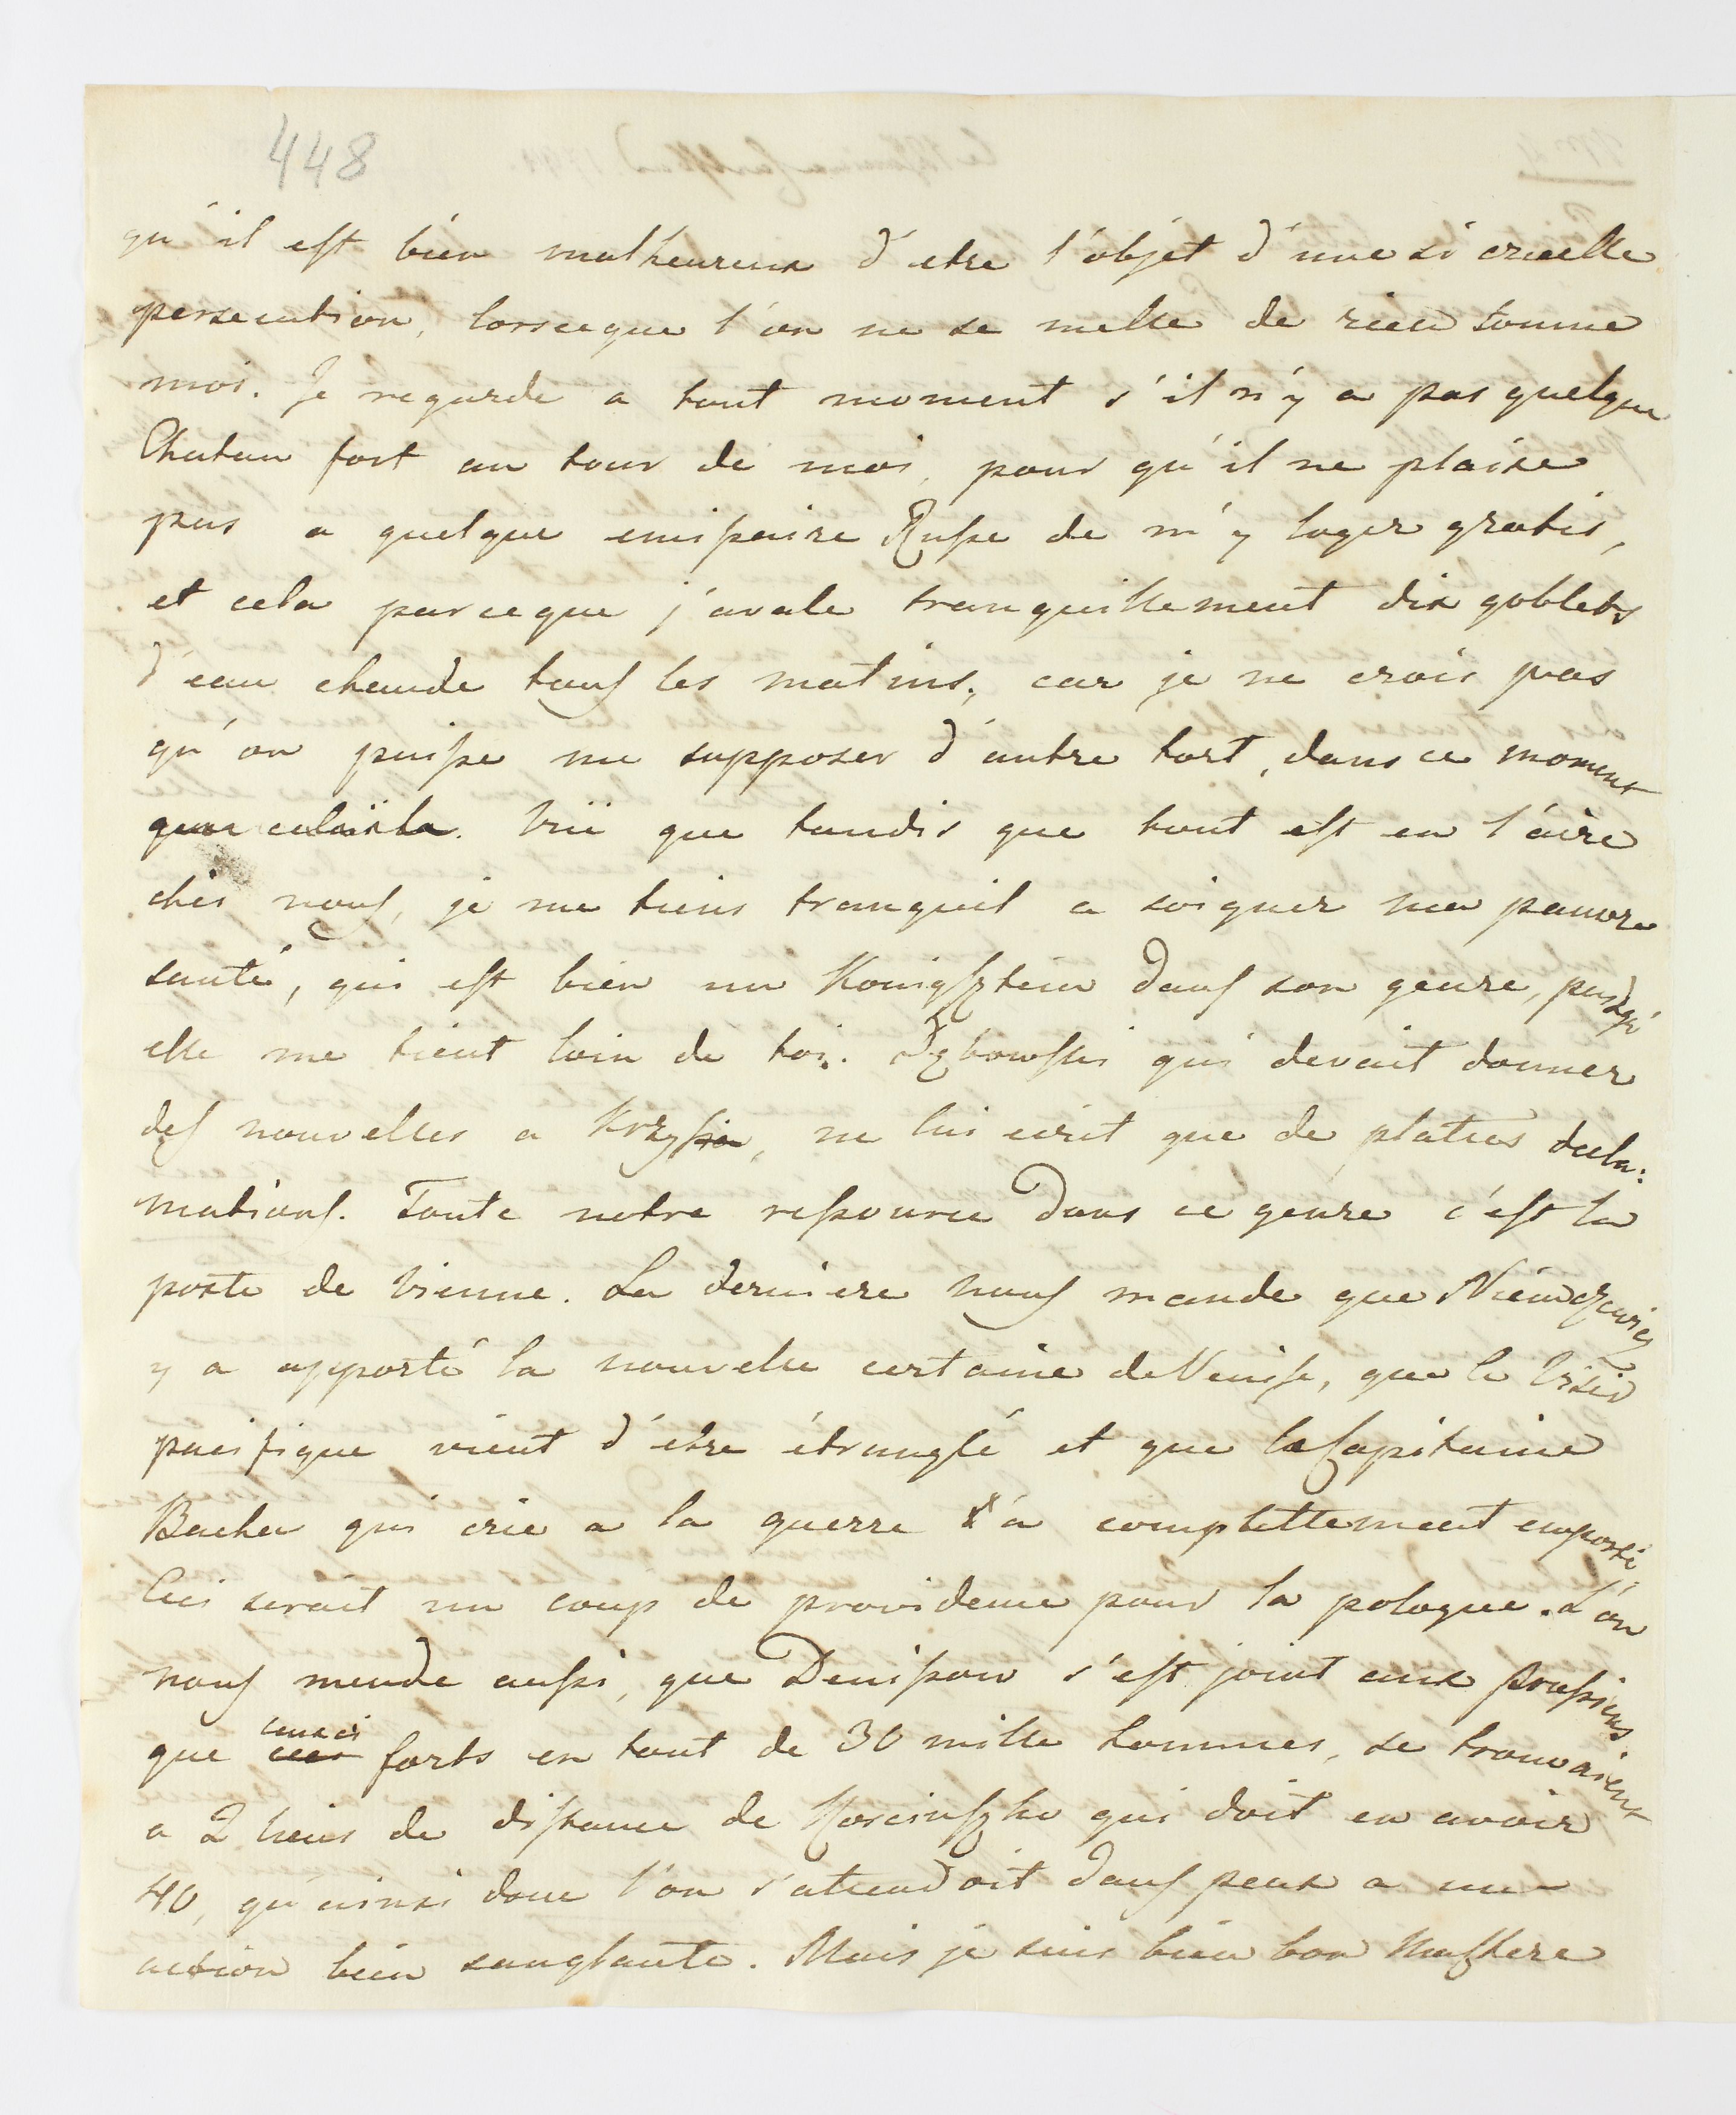 448
qu'il est bien malheureux d'etre l'objet d'une si cruelle
persecution, lorsceque l'on ne se melle de rien comme
moi. Je regarde a tout moment s'il n'y a pas quelque
Chateau fort au tour de moi, pour qu'il ne plaise
pas a quelque emissaire Russe de m'y loger gratis,
et cela parceque j'avale tranquillement dix goblets
d'eau chaude tous les matins, car je ne crois pas
qu'on puisse me supposer d'autre tort, dans ce moment
que celui la. Vuë que tandis que tout est en l'aire
chés nous, je me tiens tranquil a soigner ma pauvre
santé, qui est bien un Konigsztein dans son genre, puisqu'
elle me tient loin de toi. qui devait donner
des nouvelles a Krzysia, ne lui ecrit que de plattes decla:
mations. Toute notre ressource dans ce genre c'est la
poste de Vienne. La derniere nous mande que Niemcewicz
y a apporté la nouvelle certaine de Venise, que le Visir
pacifique vient d'etre étranglé et que le Capitaine
Bacha qui crie a la guerre l'a complettement emporté.
Ceci serait un coup de providence pour la pologne. L'on
nous mande aussi, que Denisow s'est joint aux prussiens
que ceux ci forts en tout de 30 mille hommes, se trouvaient
a 2 lieues de distance de Kosciuszko qui doit en avoir
40, qu'ainsi donc l'on s'attendoit dans peux a une
action bien sanglante. Mais je suis bien bon